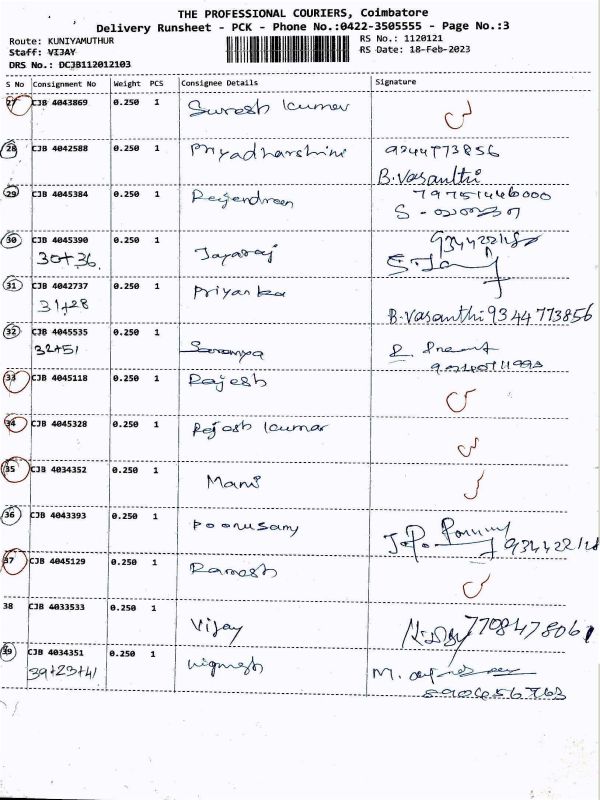 THE PROFESSIONAL COURIERS, Coimbatore
Delivery Runsheet - PCK - Phone No.:0422-3505555 - Page No.:3
Route: KUNIYAMUTHUR RS No.: 1120121
Staff: VIJAY RS Date: 18-Feb-2023
DRS No.: DCJB112012103
S No Consignment No Weight PCS Consignee Details Signature
27 CJB 4043869 0.250 1 Suresh Kumar
28 CJB 4042588 0.250 1 Priyadharshini 9344773856
B.Vasanthi
29 CJB 4045384 0.250 1 Rajendran
30 CJB 4045390 0.250 1 Jayaraj
30+36
31 CJB 4042737 0.250 1 Priyanka
31+28 B.Vasanthi 9344773856
32 CJB 4045535 0.250 1 Saranya
32+51
33 CJB 4045118 0.250 1 Rajesh
34 CJB 4045328 0.250 1 Rajesh Kumar
35 CJB 4034352 0.250 1 Mani
36 CJB 4043393 0.250 1 Poonusamy
37 CJB 4045129 0.250 1 Ramesh
38 CJB 4033533 0.250 1 Vijay 7708478061
39 CJB 4034351 0.250 1 Vignesh M.
39+23+41